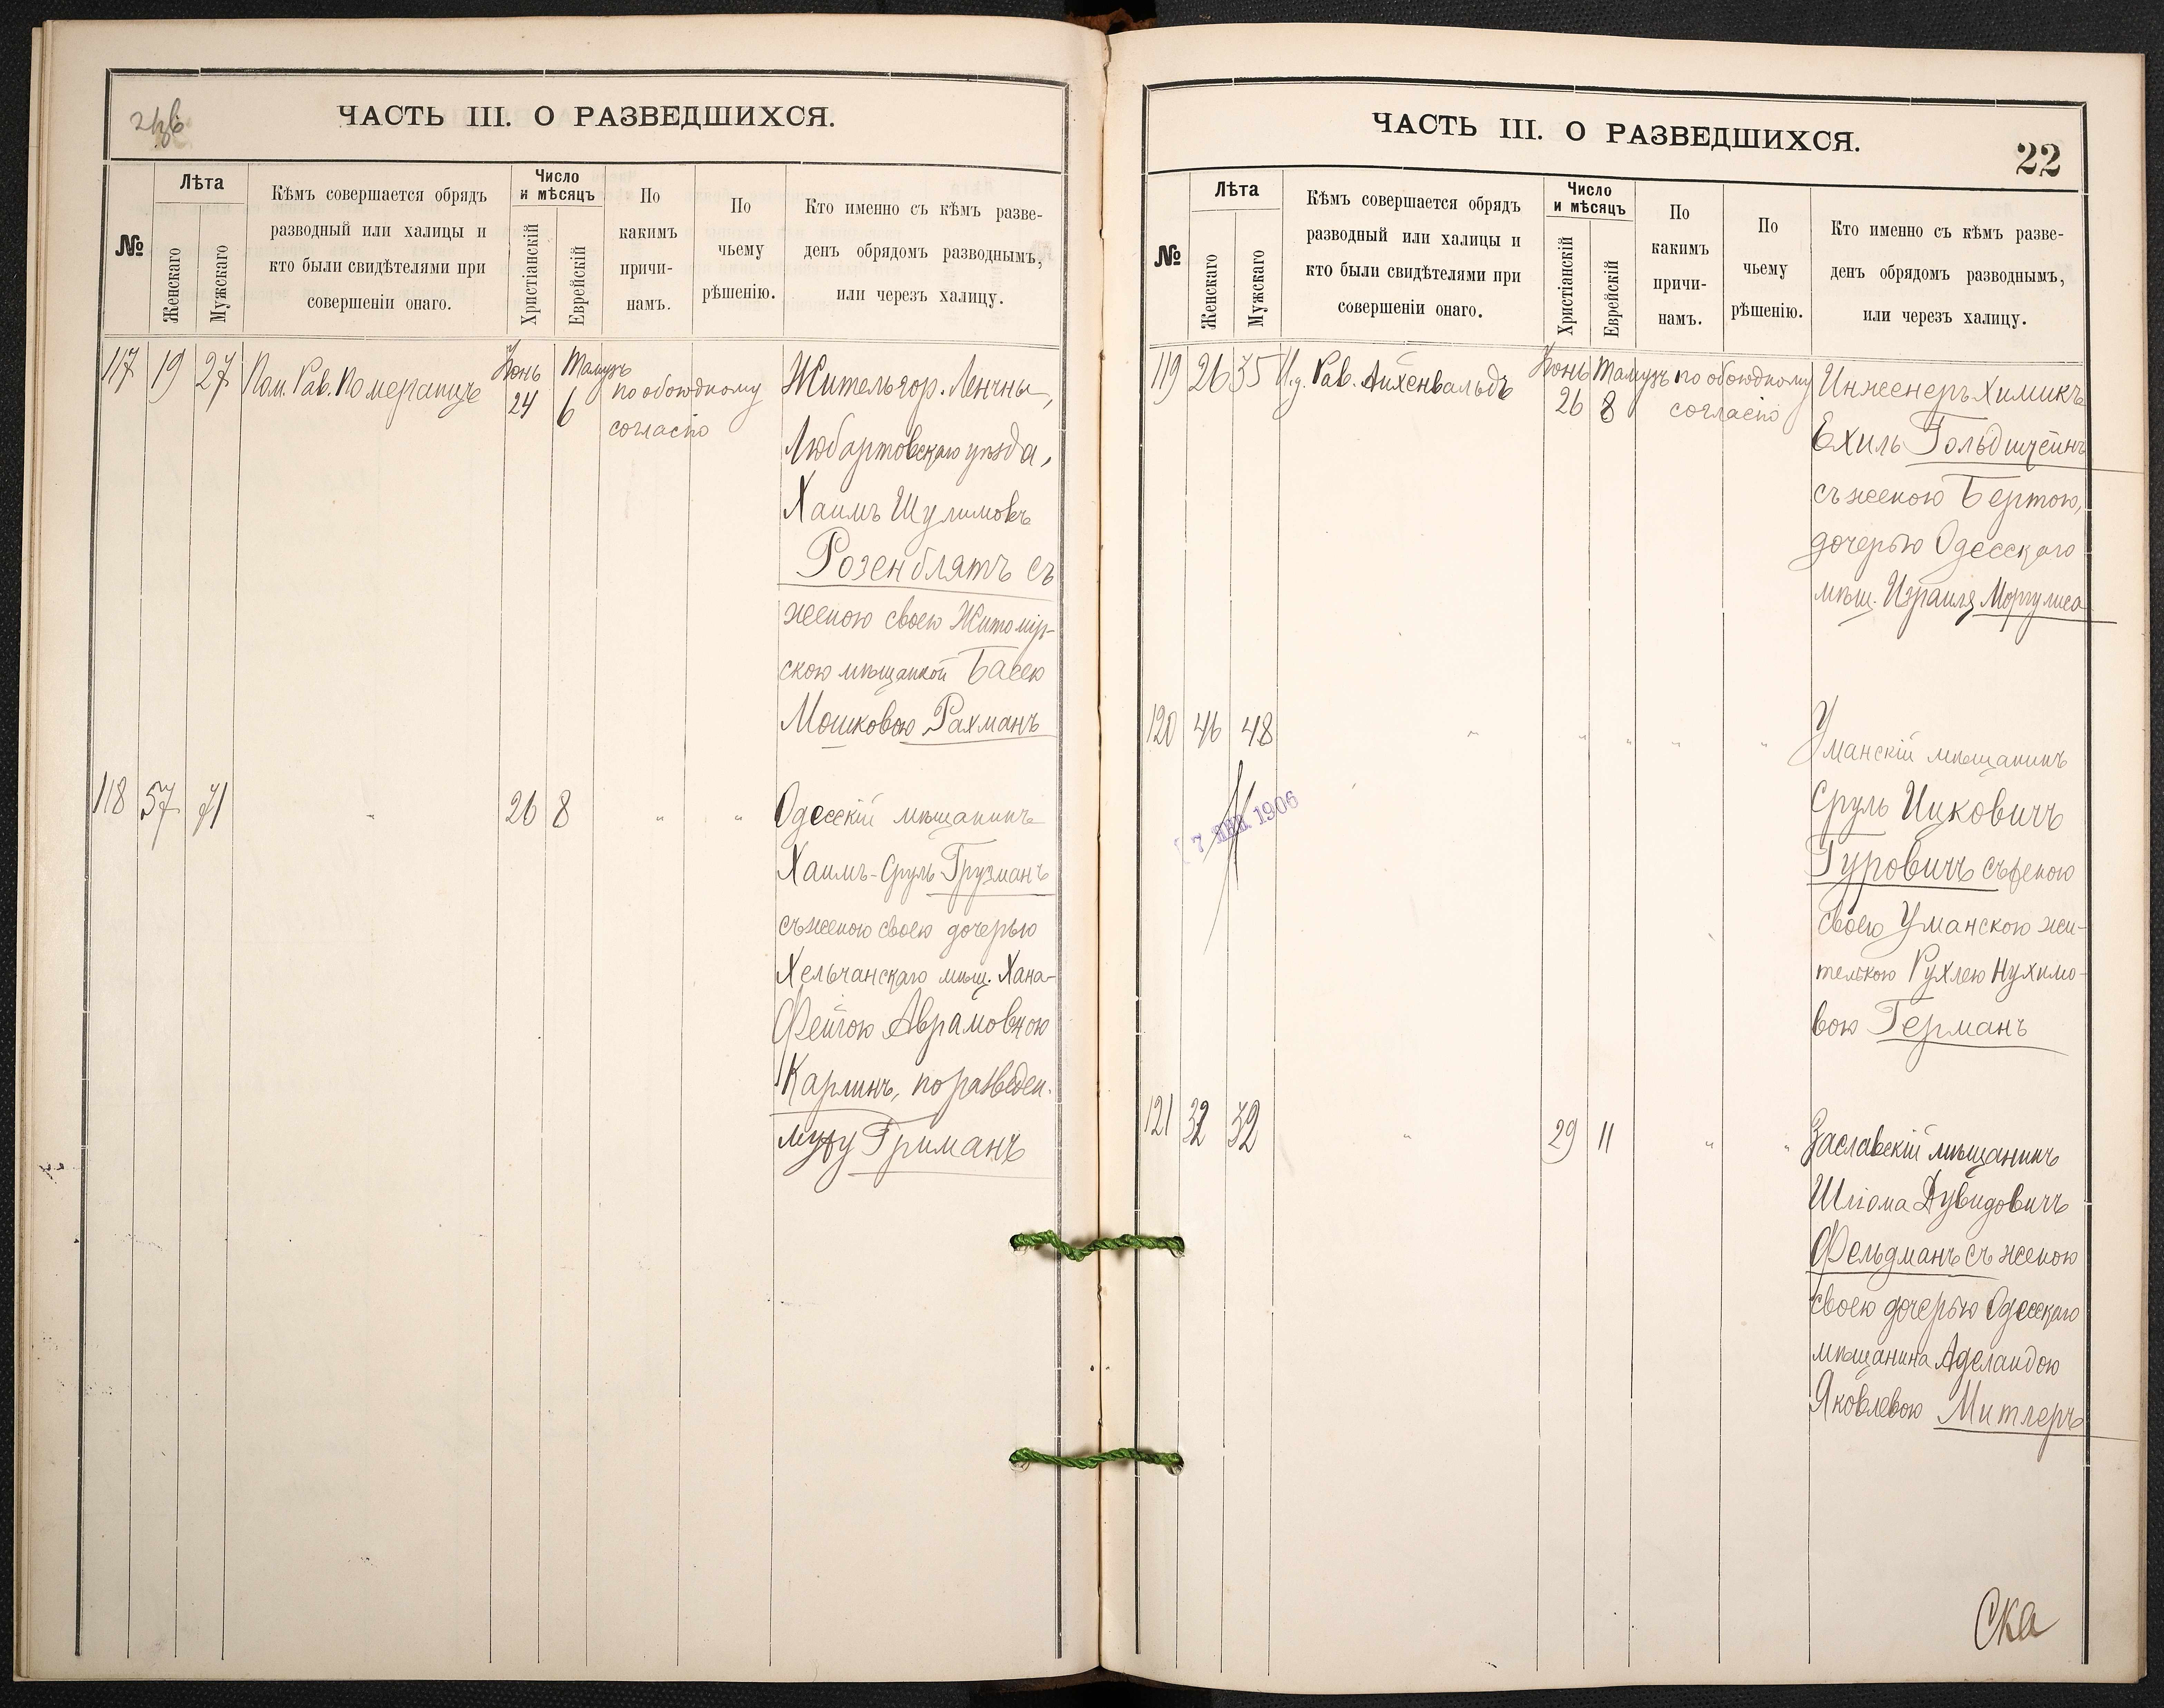 ЧАСТЬ III. О РАЗВЕДШИХСЯ.
№
Лѣта
Женскаго
Мужскаго
Кѣмъ совершается обрядъ
разводный или халицы и
кто были свидѣтелями при
совершеніи онаго.
Число
и мѣсяцъ
Христіанскій
Еврейскій
По
какимъ
причи-
намъ.
По
чьему
рѣшенію.
Кто именно съ кѣмъ разве-
денъ обрядомъ разводнымъ,
или черезъ халицу.
117 19 27 Пом. Рав. Померанцъ Іюнь 24 Тамузъ 6 по обоюдному
согласію
Житель гор. Ленчны,
Любартовскаго уѣзда,
Хаимъ Шулимовъ
Розенблятъ съ
женою своею Житомір-
скою мѣщанкой Басею
Мошковою Рахманъ
118 57 71 " 26 8 " "
Одесскій мѣщанинъ
Хаимъ-Сруль Грузманъ
съ женою своею дочерью
Хельчанскаго мѣщ. Хана-
Фейгою Аврамовною
Карлинъ, по разведен.
мужу Гриманъ
ЧАСТЬ III. О РАЗВЕДШИХСЯ.
22
№
Лѣта
Женскаго
Мужскаго
Кѣмъ совершается обрядъ
разводный или халицы и
кто были свидѣтелями при
совершеніи онаго.
Число
и мѣсяцъ
Христіанскій
Еврейскій
По
какимъ
причи-
намъ.
По
чьему
рѣшенію.
Кто именно съ кѣмъ разве-
денъ обрядомъ разводнымъ,
или черезъ халицу.
119 26 35 И.д. Рав. Айхенвальдъ Іюнь 26 Тамузъ 8 по обоюдному
согласію
Инженеръ Химикъ
Ехиль Гольдштейнъ
съ женою Бертою,
дочерью Одесскаго
мѣщ. Израиля Моргулиса
120 46 48 " " " " "
Уманскій мѣщанинъ
Сруль Ицковичъ
Гуровичъ съ женою
своею Уманскою жи-
телькою Рухлею Нухимо-
вою Германъ
7 1906
121 32 32 " 29 11 " "
Заславскій мѣщанинъ
Шліома Дувидовичъ
Фельдманъ съ женою
своею дочерью Одесскаго
мѣщанина Аделаидою
Яковлевою Митлеръ
Ска